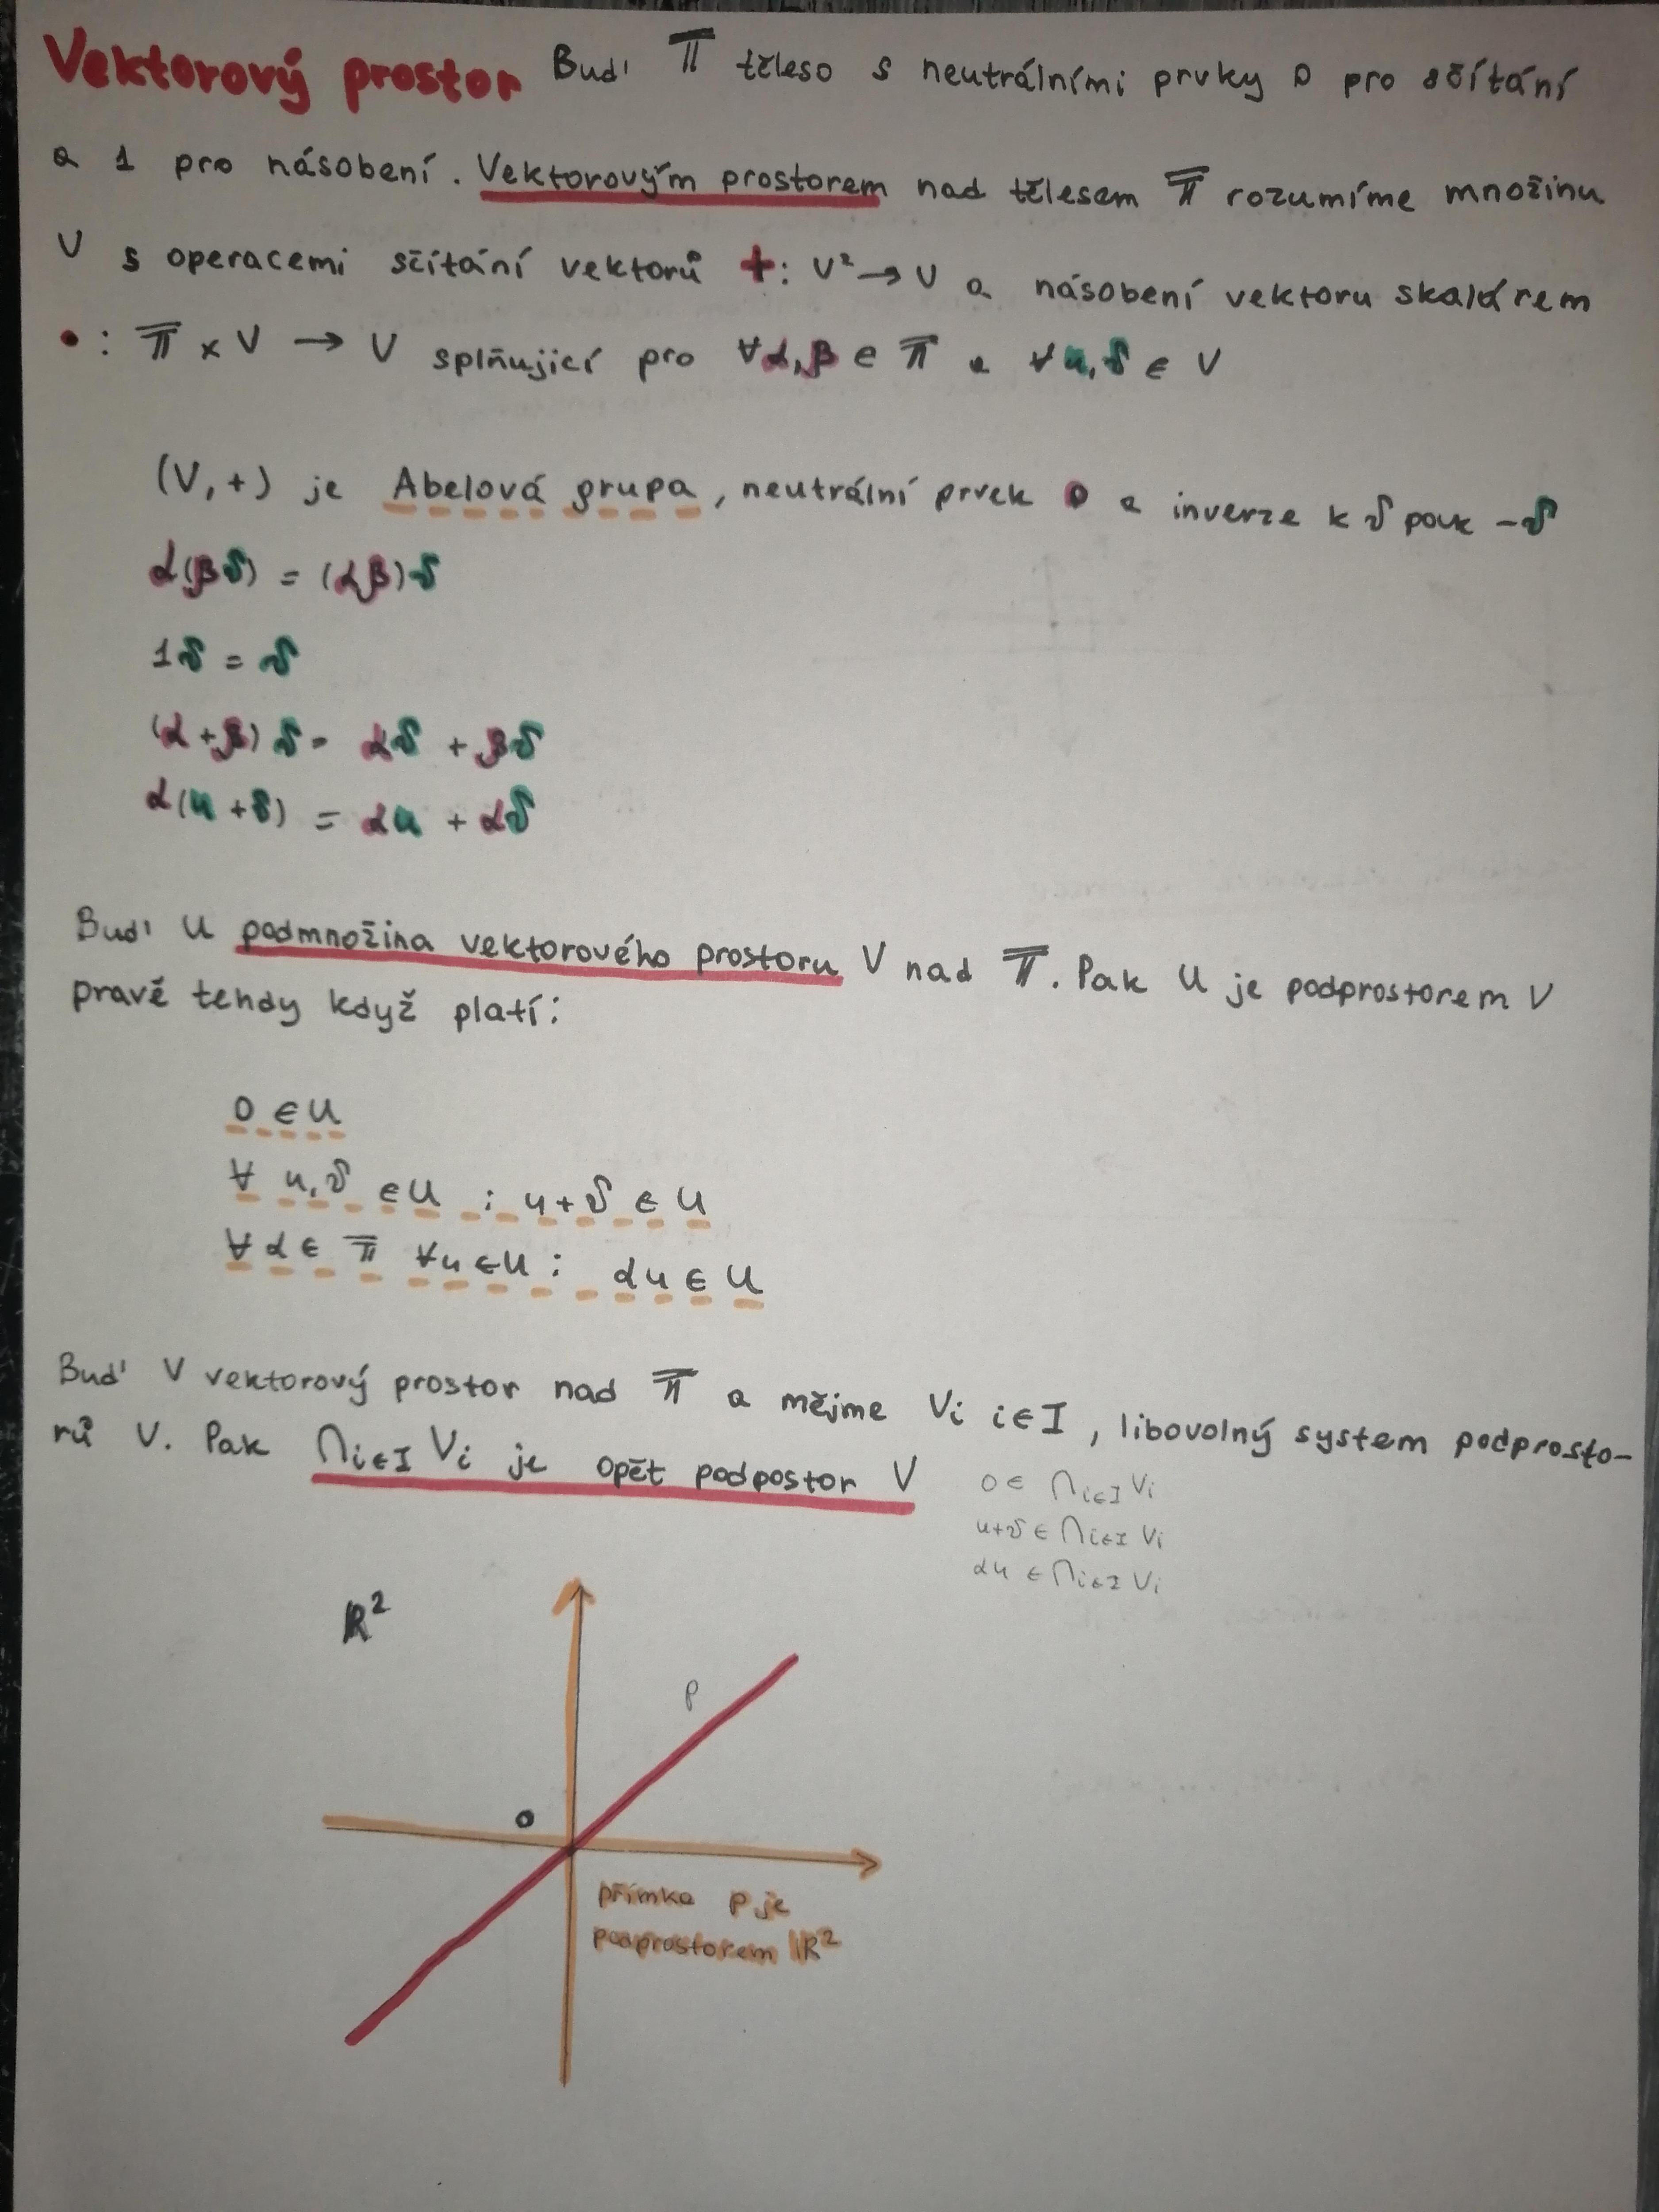 Vektorový prostor Buď 𝕋 těleso s neutrálními prvky 0 pro sčítání
a 1 pro násobení. Vektorovým prostorem nad tělesem 𝕋 rozumíme množinu
V s operacemi sčítání vektorů +: V² → V a násobení vektoru skalárem
•: 𝕋 × V → V splňující pro ∀α,β ∈ 𝕋 a ∀u,v ∈ V
(V,+) je Abelová grupa, neutrální prvek 0 a inverze k v pouk -v
α(βv) = (αβ)v
1v = v
(α+β)v = αv + βv
α(u+v) = αu + αv
Buď U podmnožina vektorového prostoru V nad 𝕋. Pak U je podprostorem V
pravě tehdy když platí:
0 ∈ U
∀ u,v ∈ U : u+v ∈ U
∀α ∈ 𝕋 ∀u ∈ U : αu ∈ U
Buď V vektorový prostor nad 𝕋 a mějme Vi i∈I, libovolný system podprosto-
rů V. Pak ∩i∈I Vi je opět podpostor V
0 ∈ ∩i∈I Vi
u+v ∈ ∩i∈I Vi
αu ∈ ∩i∈I Vi
ℝ²
p
0
přímka p je
podprostorem ℝ²